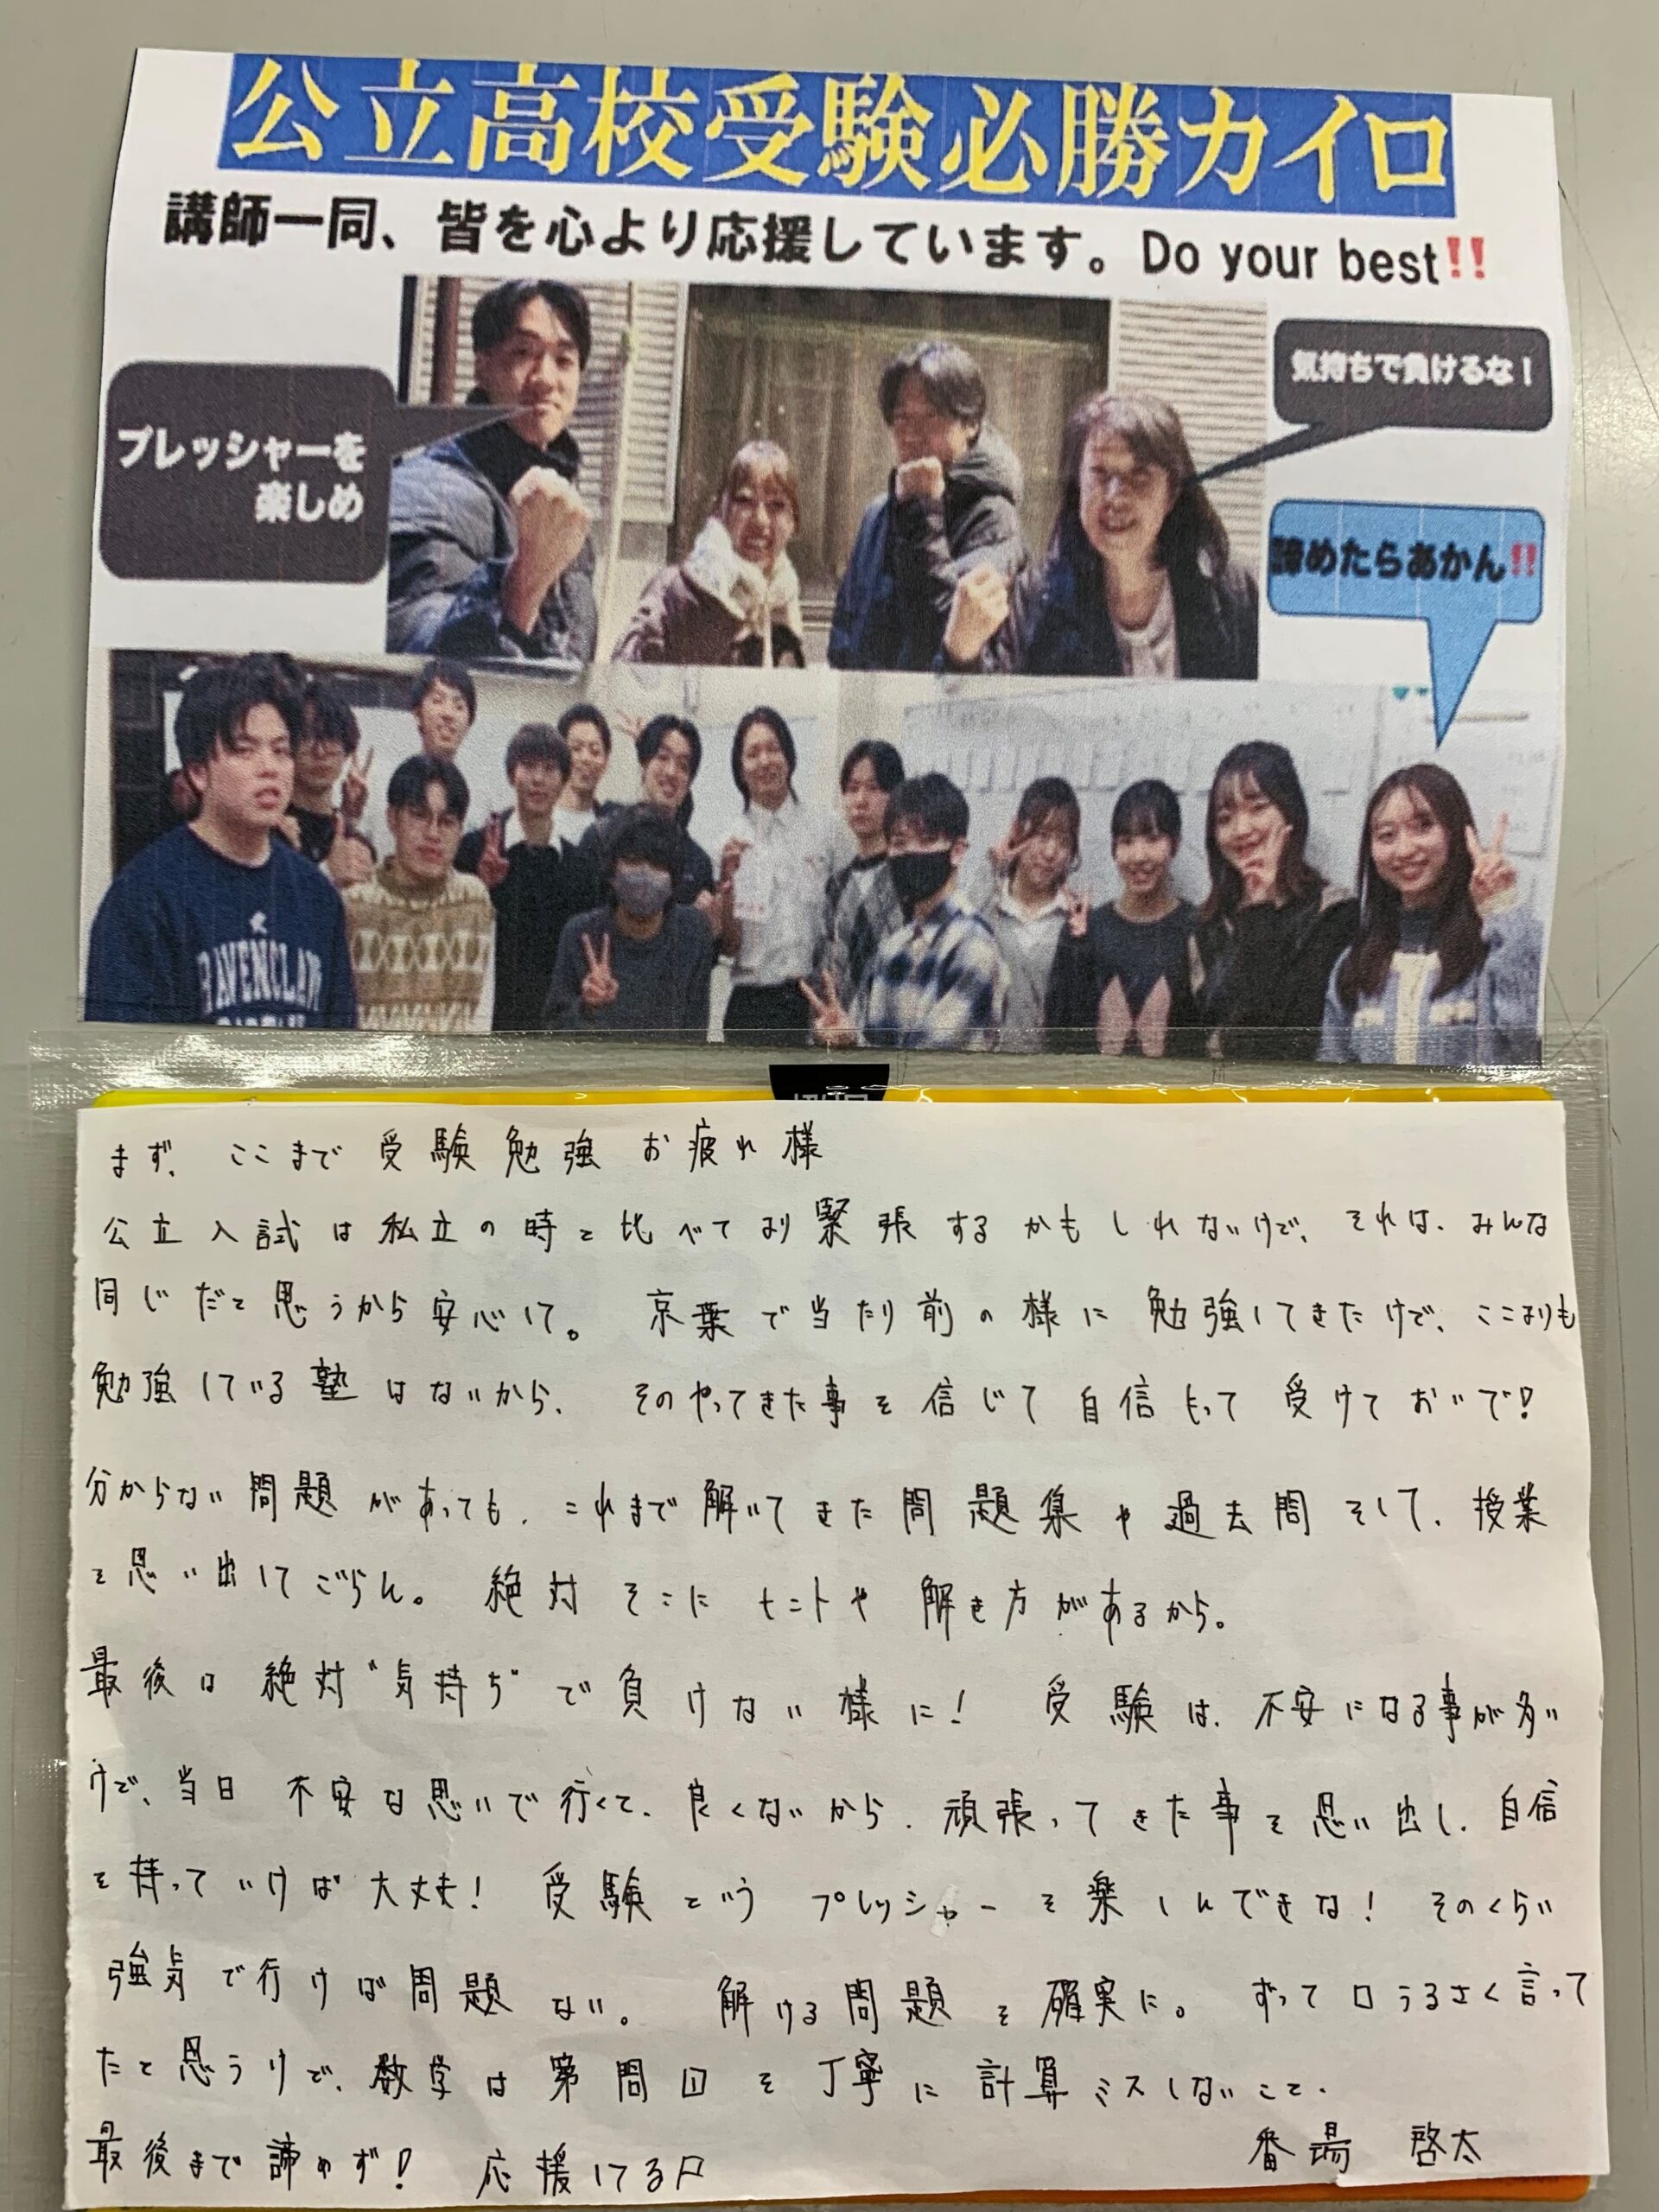 公立高校受験必勝カイロ
講師一同、皆を心より応援しています。Do your best!!
プレッシャーを
楽しめ
気持ちで負けるな！
諦めたらあかん!!
RAVENCLAW
まず、ここまで受験勉強お疲れ様
公立入試は私立の時と比べてより緊張するかもしれないけど、それは、みんな
同じだと思うから安心して。 京葉で当たり前の様に勉強してきたけど、ここよりも
勉強している塾はないから、 そのやってきた事を信じて自信もって受けておいで！
分からない問題があっても、これまで解いてきた問題集や過去問そして、授業
を思い出してごらん。 絶対そこにヒントや解き方があるから。
最後は絶対“気持ち”で負けない様に！ 受験は、不安になる事が多い
けど、当日不安な思いで行くて、良くないから、頑張ってきた事を思い出し、自信
を持っていけば大丈夫！ 受験というプレッシャーを楽しんできな！ そのくらい
強気で行けば問題ない。 解ける問題を確実に。 ずっと口うるさく言って
たと思うけど、数学は第問目を丁寧に計算ミスしないこと、
最後まで諦めず！ 応援してる
番場 啓太